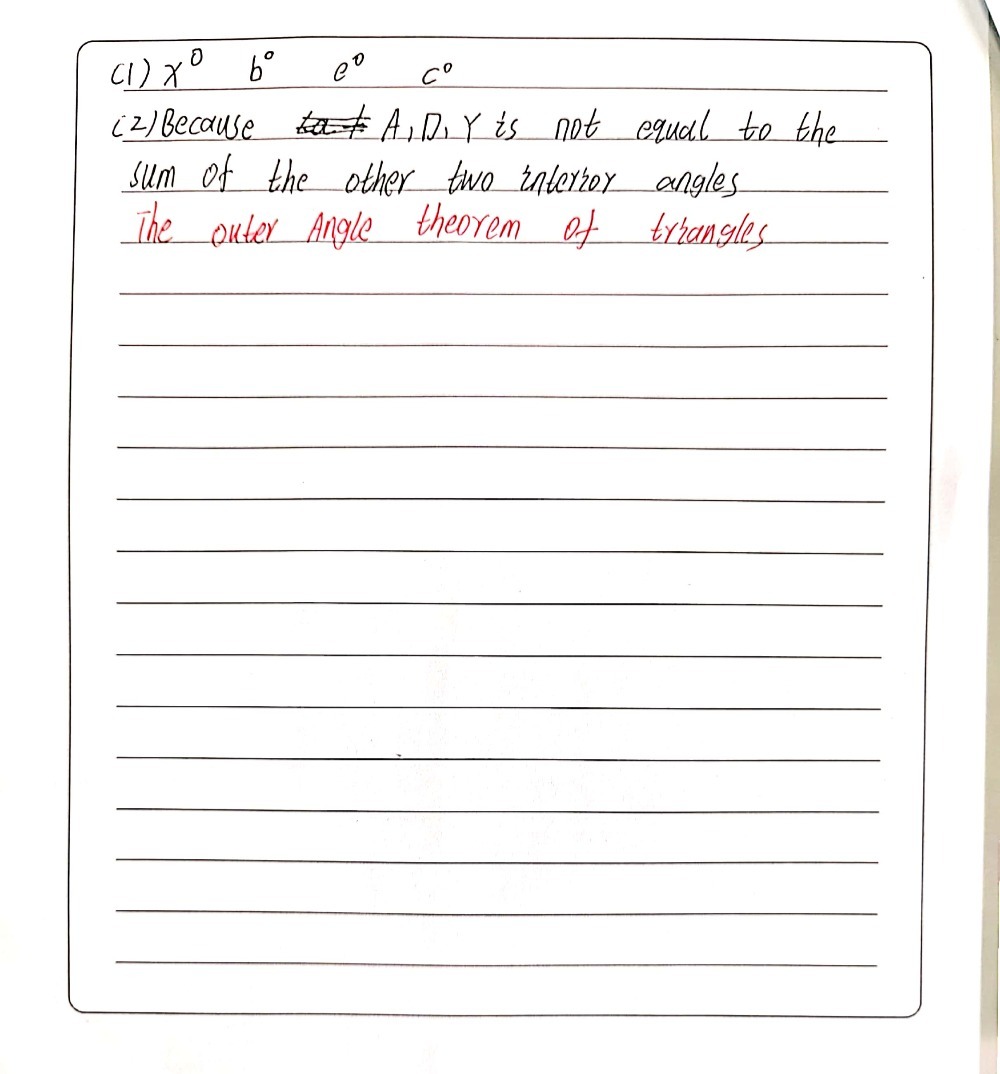 (1) x° b° e° c°
(2) Because A, D, Y is not equal to the
sum of the other two interior angles
The outer Angle theorem of triangles